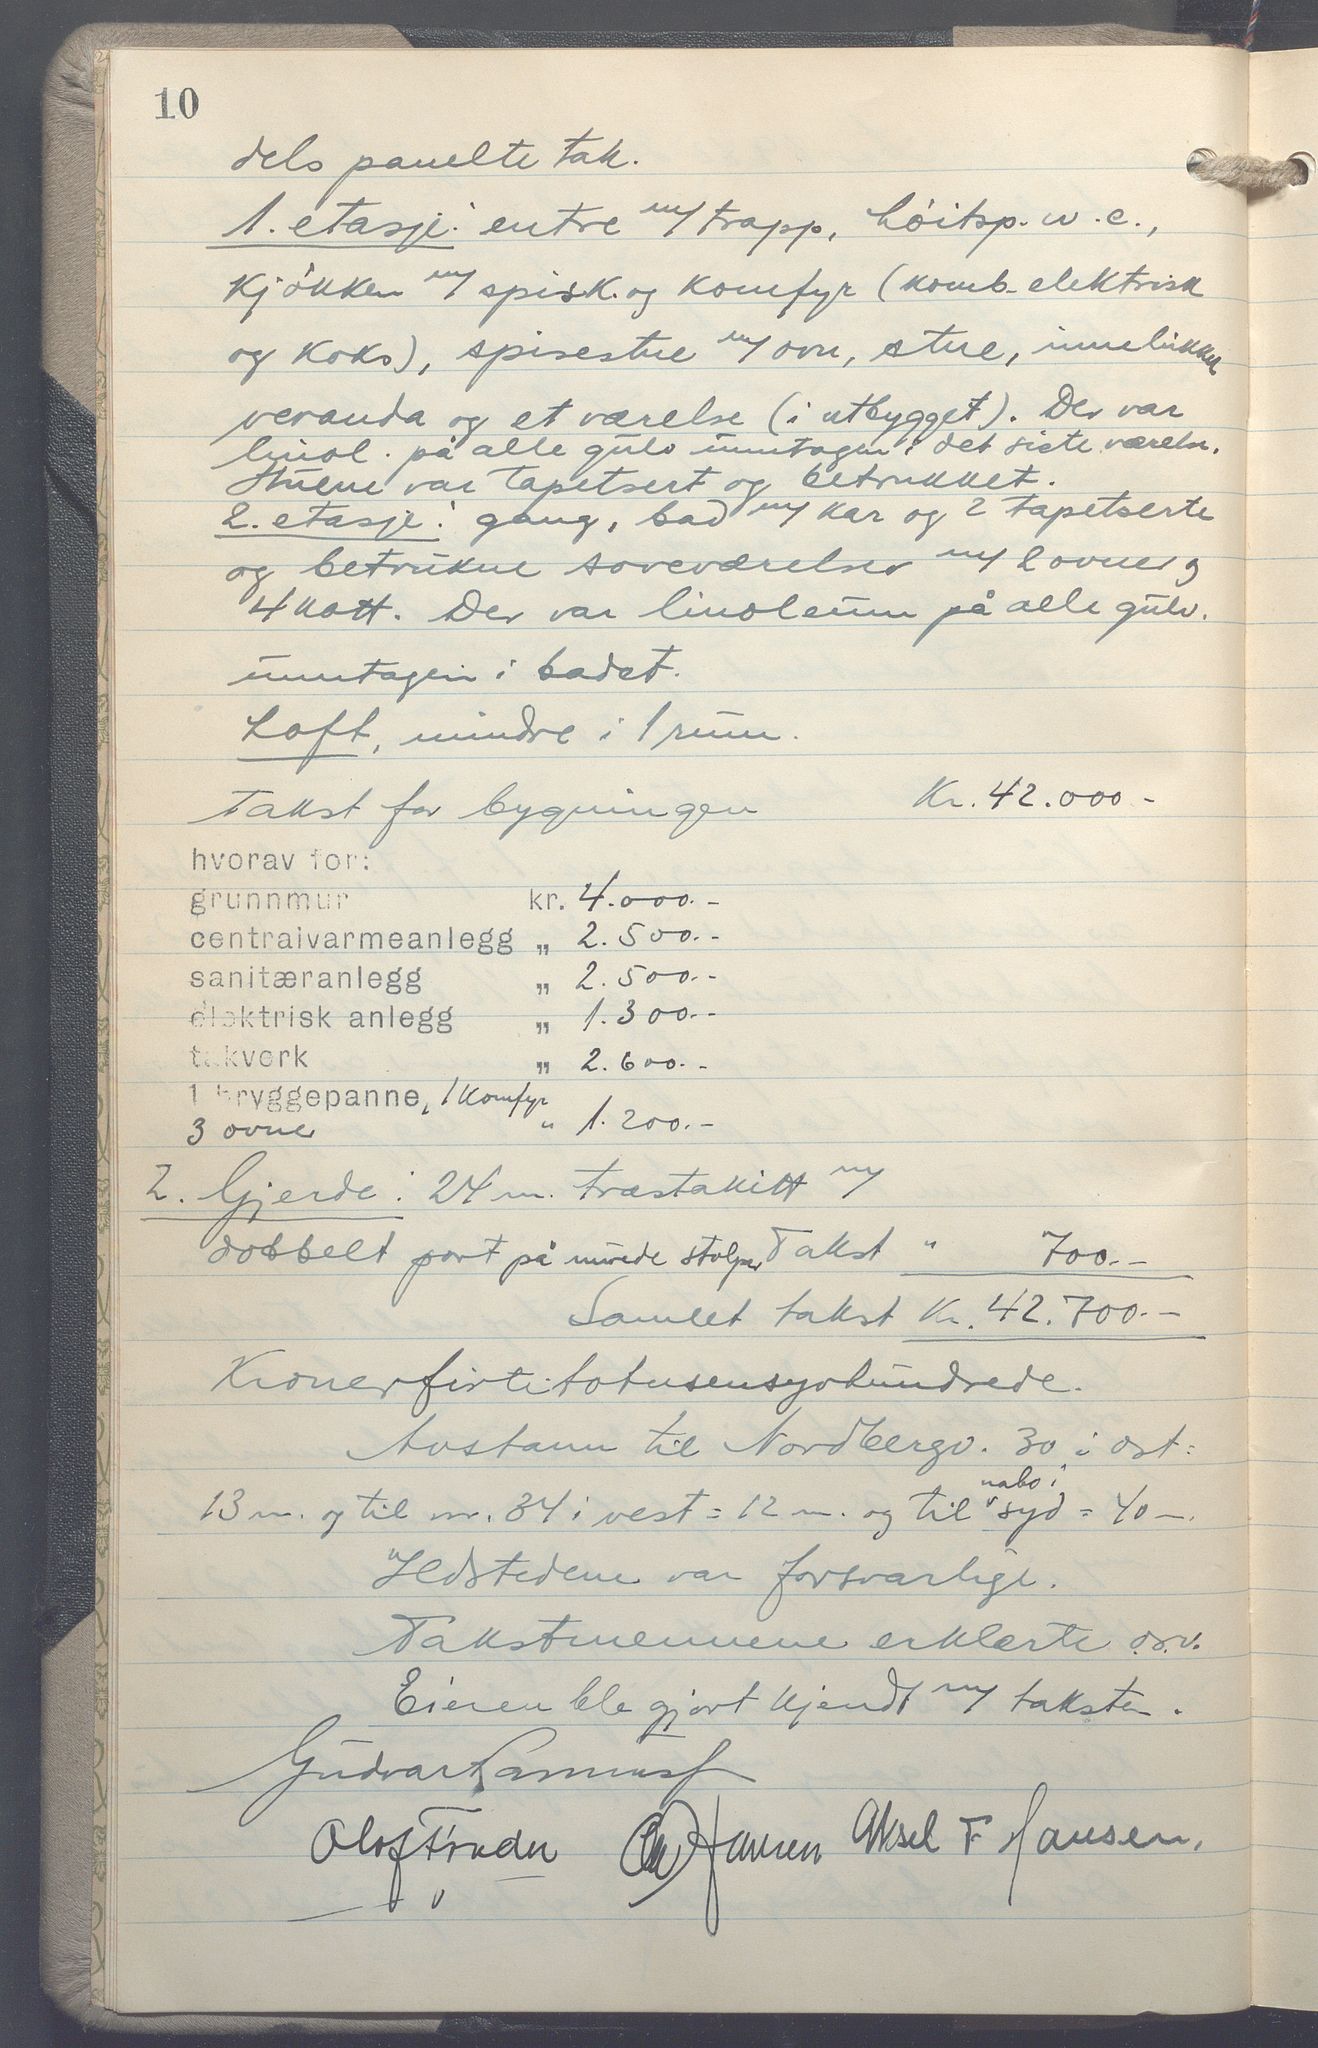 10
dels panelte tak.
1. etasje: entre m/ trapp, höitsp. w.c.,
kjökken m/ spisk. og komfyr (komb. elektrisk
og koks), spisestue m/ ovn, stue, innelukket
veranda og et værelse (i utbygget). Der var
linol. på alle gulv unntagen i det siste værelse.
Stuene var tapetsert og betrukket.
2. etasje: gang, bad m/ kar og 2 tapetserte
og betrukne soveværelser m/ 2 ovner og
4 kott. Der var linoleum på alle gulv.
unntagen i badet.
Loft, mindre i 1 rum.
Takst for bygningen Kr. 42.000.-
hvorav for:
grunnmur kr. 4.000.-
centralvarmeanlegg „ 2.500.-
sanitæranlegg „ 2.500.-
elektrisk anlegg „ 1.300.-
takverk „ 2.600.-
1 bryggepanne, 1 komfyr
3 ovner " 1.200.-
2. Gjerde: 24 m. træstakitt m/
dobbelt port på murede stolper Takst " 700.-
Samlet takst Kr. 42.700.-
Kronerførtitotusensyvhundrede.
Avstann til Nordbergv. 30 i ost =
13 m. og til nr. 34 i vest = 12 m. og til nabo i syd = 40 m.
Ildstedene var forsvarlige.
Takstmennene erklærte o.s.v.
Eieren ble gjort kjendt m/ taksten.
Gudvar
Olof Hansen Aksel F Hansen.